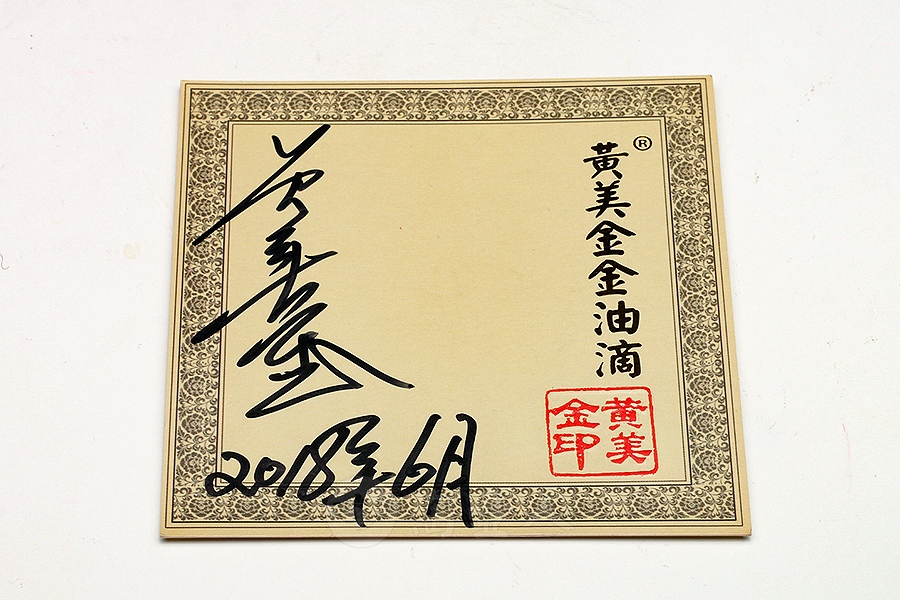 黄美金金油滴®
黄美
金印
黄美金
2018年6月